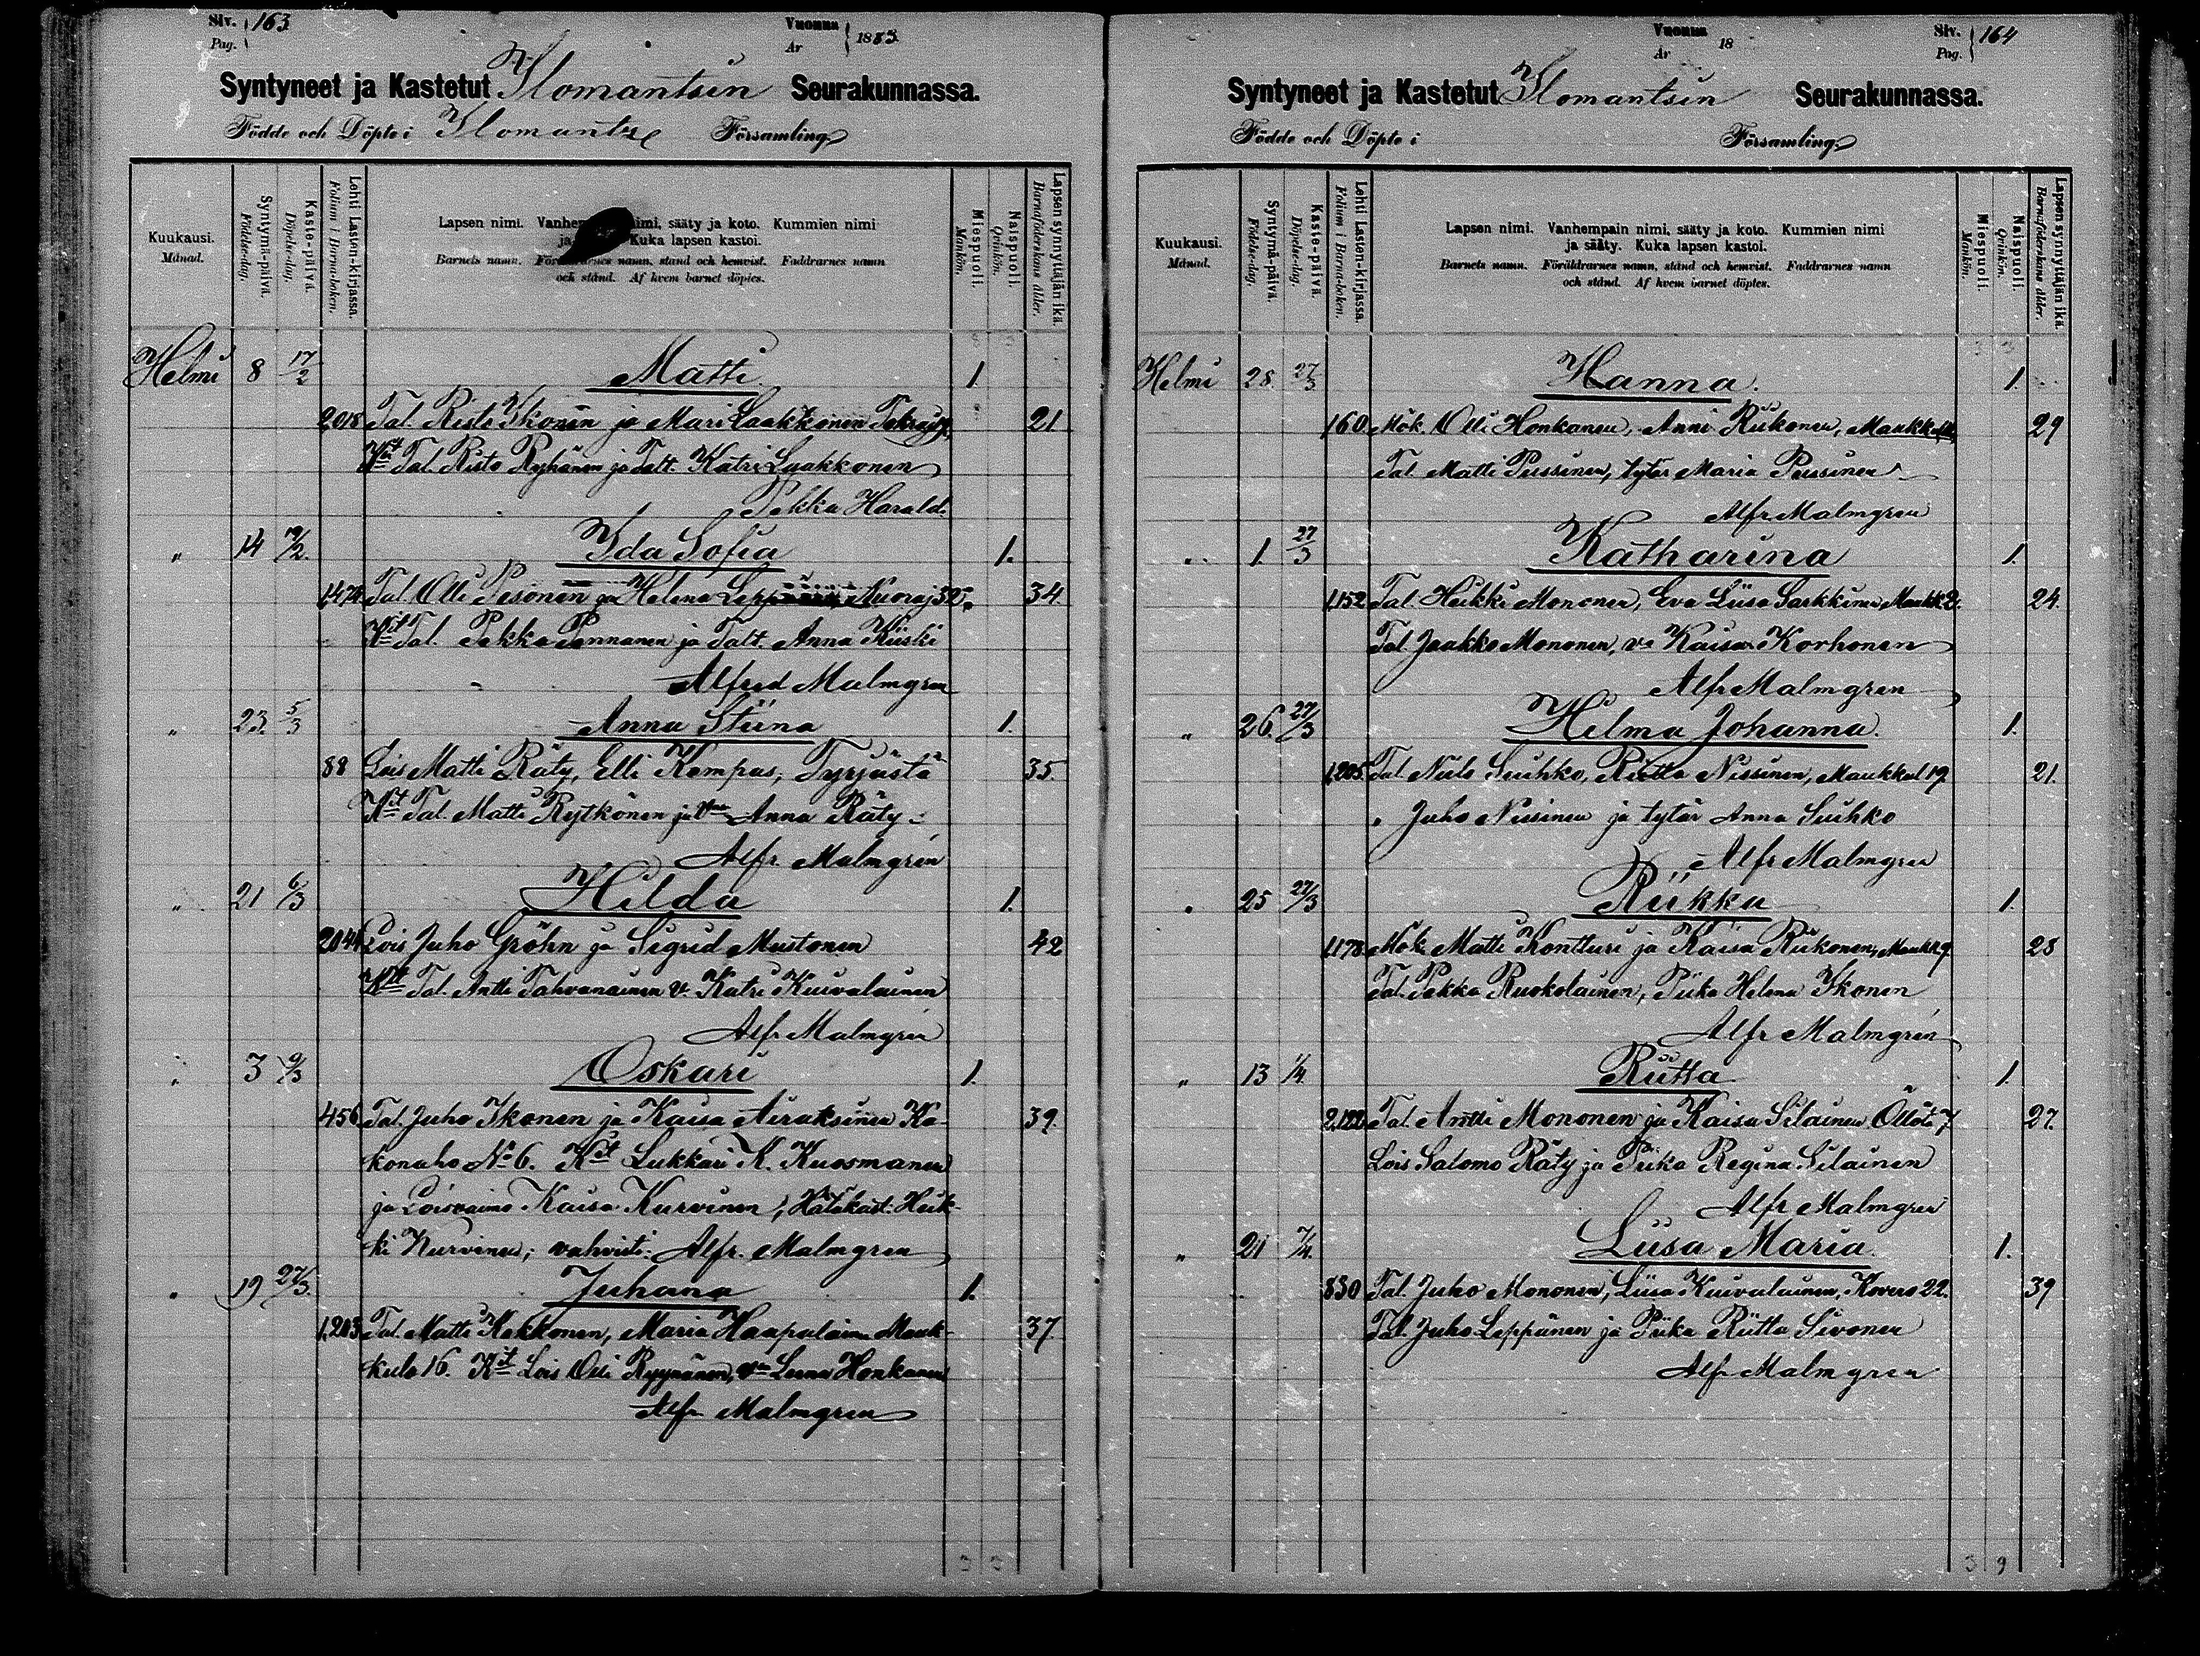 Siv. 163
Pag.
Vuonna 1883
År
Syntyneet ja Kastetut Ilomantsin Seurakunnassa.
Födde och Döpte i Ilomantz Församling
Kuukausi.
Månad.
Syntymä-päivä.
Födelse-dag.
Kaste-päivä.
Döpelse-dag.
Lehti Lasten-kirjassa.
Folium i Barna-boken.
Lapsen nimi. Vanhem nimi, sääty ja koto. Kummien nimi
ja Kuka lapsen kastoi.
Barnets namn. Föräldrarnes namn, stand och hemvist. Faddrarnes namn
och stånd. Af hvem barnet döptes.
Miespuoli.
Mankön.
Naispuoli.
Qvinkön.
Lapsen synnyttäjän ikä.
Barnaföderskans ålder.
Helmi 8 17/2 Matti 1
2018 Tal. Risto Ikonen ja Mari Laakkonen 21
Kit Tal. Risto Ryhänen ja Talt. Katri Laakkonen
Pekka Harald.
" 14 19/2. Ida Sofia 1.
1474 Tal. Olli Pesonen ja Helena Nuoraj 32. 34
Kit Tal. Pekka Pennanen ja Talt. Anna Kiiski
Alfred Malmgren
" 23. 5/3 Anna Stiina 1.
88 Lois Matti Räty, Elli Kempas, Tyrjästä 35.
Kit Tal. Matti Rytkönen ja Anna Räty
Alfr. Malmgren
" 21 6/3 Hilda 1.
2044 Lois Juho Gröhn ja Sigrid Mustonen 42
Kit Tal. Antti Tahvanainen v. Katri Kuivalainen
Alfr Malmgren
" 3 9/3 Oskari 1.
456 Tal. Juho Ikonen ja Kaisa Airaksinen Ko-
konaho No 6. Kit Lukkari K. Kuosmanen
ja Loisvaimo Kaisa Kurvinen, Hätäkast. Heik-
ki Kurvinen; vahvisti: Alfr. Malmgren
" 19 27/3. Juhana 1.
1,203 Tal. Matti Kekkonen, Maria Haapalainen Mauk-
kula 16. Kit Lois Olli Ryynänen, v:mo Leena Honkanen
Alfr Malmgren
Vuonna 18
År
Siv. 164
Pag.
Syntyneet ja Kastetut Ilomantsin Seurakunnassa.
Födde och Döpte i Församling
Kuukausi.
Månad.
Syntymä-päivä.
Födelse-dag.
Kaste-päivä.
Döpelse-dag.
Lehti Lasten-kirjassa.
Folium i Barna-boken.
Lapsen nimi. Vanhempain nimi, sääty ja koto. Kummien nimi
ja sääty. Kuka lapsen kastoi.
Barnets namn. Föräldrarnes namn, stånd och hemvist. Faddrarnes namn
och stånd. Af hvem barnet döptes.
Miespuoli.
Mankön.
Naispuoli.
Qvinkön.
Lapsen synnyttäjän ikä.
Barnaföderskans ålder.
Helmi 28. 27/3 Hanna. 1.
160 Mök. Olli Honkanen, Anni Riikonen, 29
Tal. Matti Pussinen, tytär Maria Pussinen
Alfr Malmgren
" 1. 27/3 Katharina 1.
1152 Tal. Heikki Mononen, Eva Liisa Sarkkinen, Maukk 2. 24.
Tal. Jaakko Mononen, v:o Kaisa Korhonen
Alfr Malmgren
" 26. 27/3 Hilma Johanna. 1.
1205 Tal. Niilo Suihko, Riitta Nissinen, Maukkul 19. 21.
" Juho Nissinen ja tytär Anna Suihko
Alfr Malmgren
" 25 27/3 Riikka 1.
1178 Mök. Matti Kontturi ja Kaisa Riikonen, Maukk 9. 28
Tal. Pekka Ruokolainen, Piika Helena Ikonen
Alfr Malmgren
" 13 1/4. Riitta 1.
2,122 Tal. Antti Mononen ja Kaisa Silainen Öllölä 7 27.
Lois Salomo Räty ja Piika Regina Silainen
Alfr Malmgren
" 21 7/4. Liisa Maria. 1.
830 Tal. Juho Mononen, Liisa Kuivalainen, Kovero 22. 39
Tal. Juho Leppänen ja Piika Riitta Sivonen
Alfr Malmgren
3 9